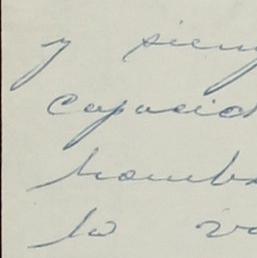 y siem
capacid
homb
lo va